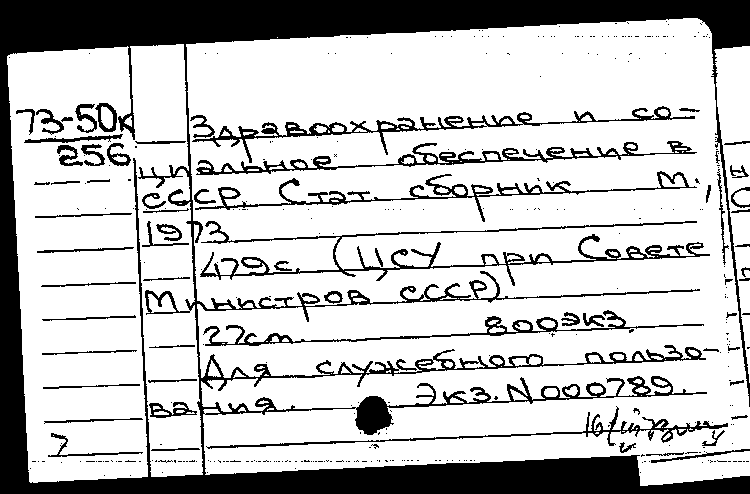 73-50к
256
Здравоохранение и со-
циальное обеспечение в
СССР. Стат. сборник. М.,
1973
479с. (ЦСУ при Совете
Министров СССР).
27см. 800экз.
Для служебного пользо-
вания. Экз. N000789.